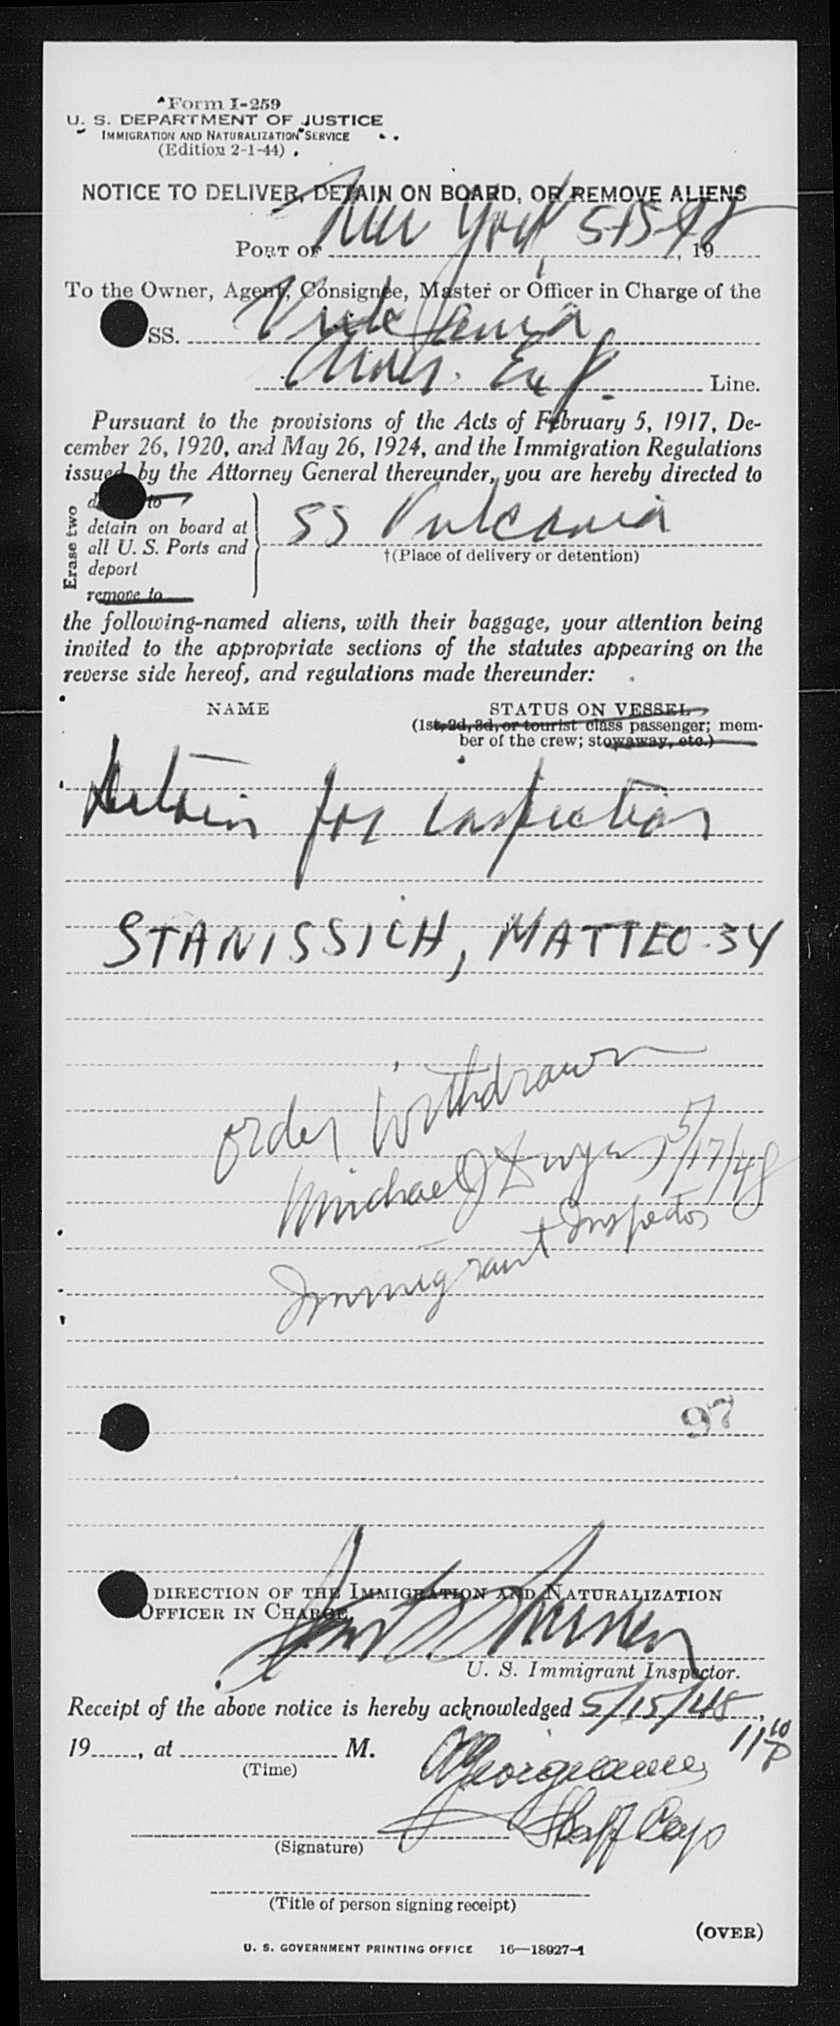 Form I-259
U. S. DEPARTMENT OF JUSTICE
IMMIGRATION AND NATURALIZATION SERVICE
(Edition 2-1-44)
NOTICE TO DELIVER, DETAIN ON BOARD, OR REMOVE ALIENS
PORT OF New York, 5-15-48, 19
To the Owner, Agent, Consignee, Master or Officer in Charge of the
SS. Vulcania
Line.
Pursuant to the provisions of the Acts of February 5, 1917, De-
cember 26, 1920, and May 26, 1924, and the Immigration Regulations
issued by the Attorney General thereunder, you are hereby directed to
Erase two
to
detain on board at
all U. S. Ports and
deport
remove to
SS Vulcania
†(Place of delivery or detention)
the following-named aliens, with their baggage, your attention being
invited to the appropriate sections of the statutes appearing on the
reverse side hereof, and regulations made thereunder:
NAME STATUS ON VESSEL
(1st, 2d, 3d, or tourist class passenger; mem-
ber of the crew; stowaway, etc.)
Detain for inspection
STANISSICH, MATTEO - 34
Order Withdrawn
Michael J Dwyer 5/17/48
Immigrant Inspector
97
DIRECTION OF THE IMMIGRATION AND NATURALIZATION
OFFICER IN CHARGE
U. S. Immigrant Inspector.
Receipt of the above notice is hereby acknowledged 5/15/48,
19, at M. 11 10 P
(Time)
Staff Capt
(Signature)
(Title of person signing receipt)
(OVER)
U. S. GOVERNMENT PRINTING OFFICE 16—18927-1